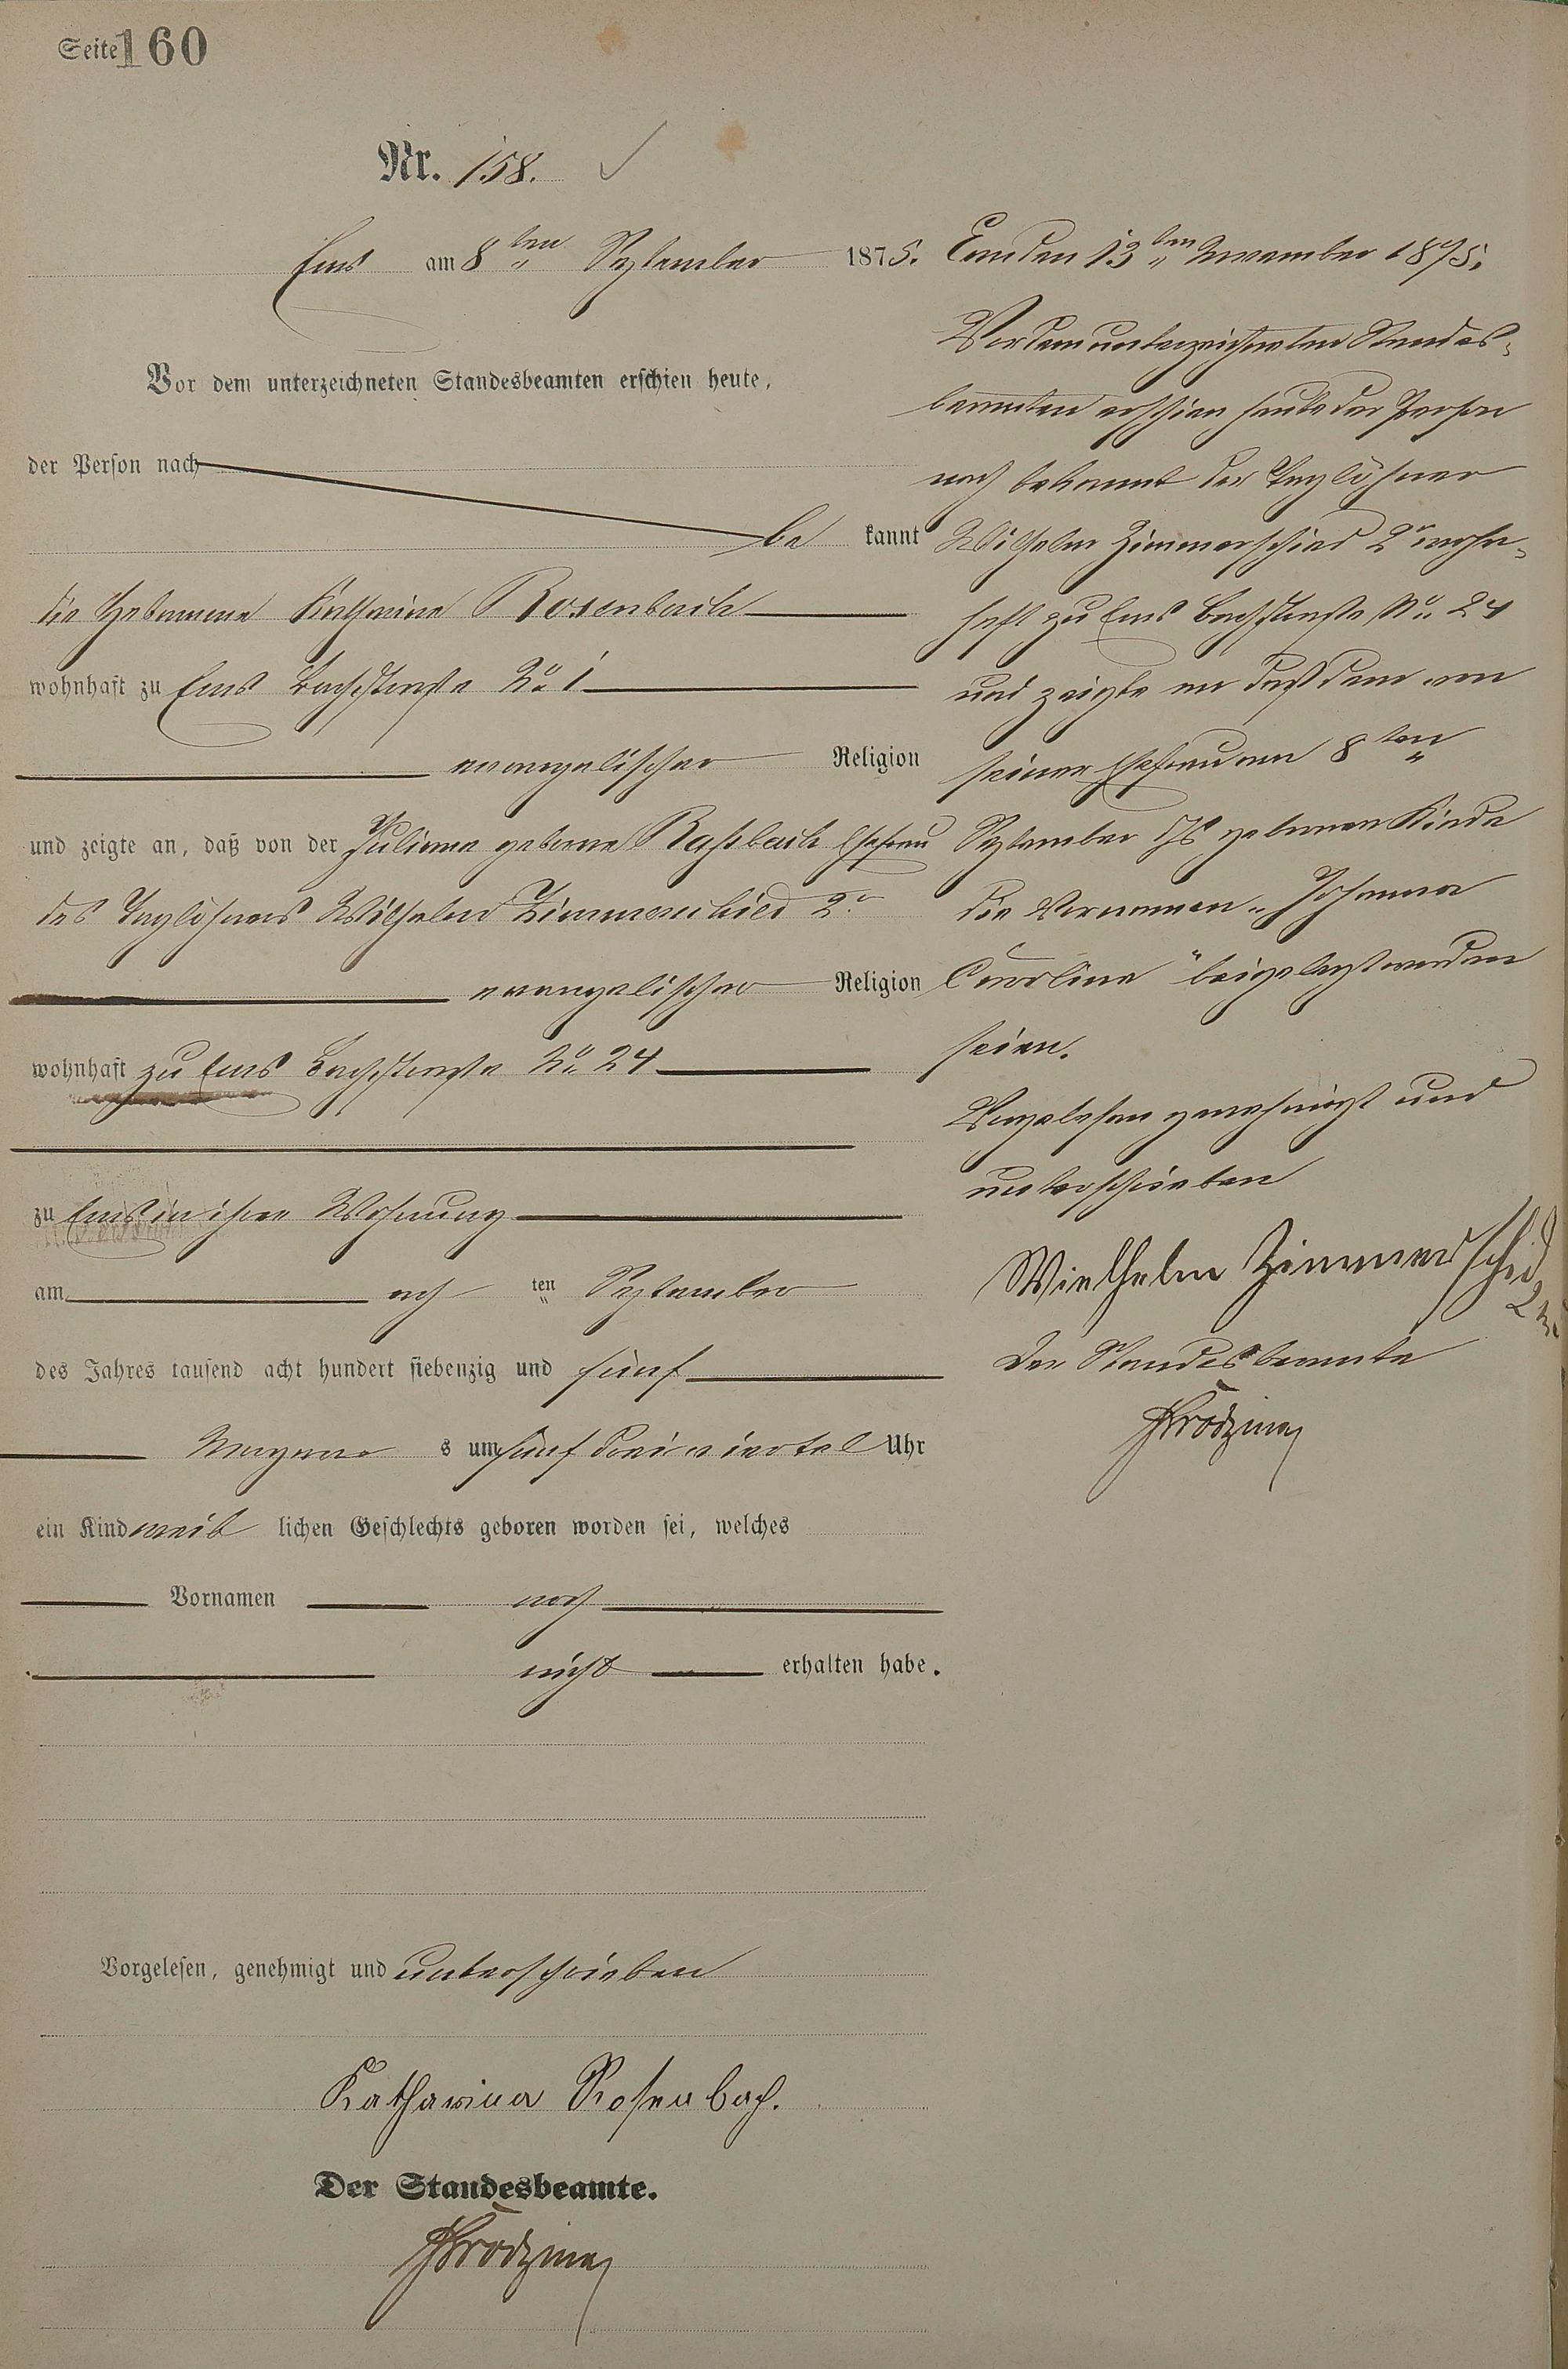 Seite 160
Nr. 158.
Ems am 8ten September 1875.
Vor dem unterzeichneten Standesbeamten erschien heute,
der Person nach
be kannt
die Hebamme Katharine Rosenbach
wohnhaft zu Ems Bachstraße No. 1
evangelischer Religion
und zeigte an, daß von der Juliane geborne Raßbach Ehefrau
des Taglöhners Wilhelm Zimmerschied 2r
evangelischer Religion
wohnhaft zu Ems Bachstraße No. 24
zu Ems in ihrer Wohnung
am acht ten September
des Jahres tausend acht hundert siebenzig und fünf
Morgens um fünf dreiviertel Uhr
ein Kind weib lichen Geschlechts geboren worden sei, welches
Vornamen noch
nicht erhalten habe.
Vorgelesen, genehmigt und unterschrieben
Katharina Rosenbach.
Der Standesbeamte.
Ems den 13ten November 1875.
Vor dem unterzeichneten Standes-
beamten erschien heute der Person
nach bekannt der Taglöhner
Wilhelm Zimmerschied 2r wohn-
haft zu Ems Bachstraße No. 24
und zeigte an daß dem von
seiner Ehefrau am 8ten
September d/Js gebornen Kinde
die Vornamen "Johanna
Caroline" beigelegt worden
seien.
Vorgelesen genehmigt und
unterschrieben
Wielhelm Zimmerschid 2r
Der Standesbeamte